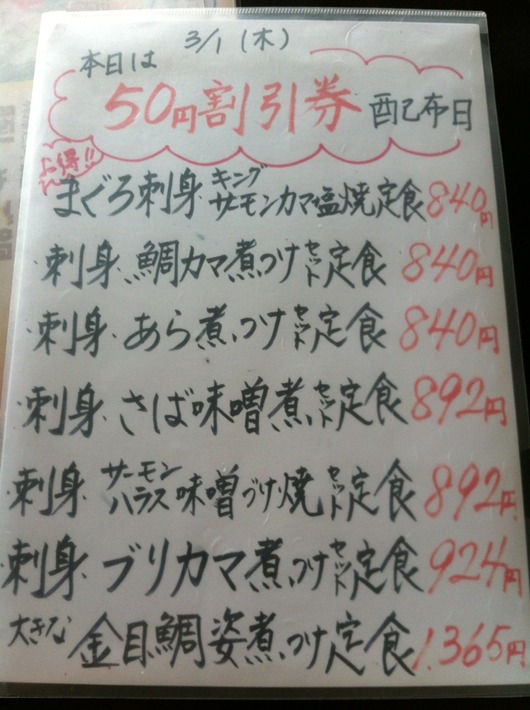 3/1 (木)
本日は
50円割引券 配布日
お得!!
まぐろ刺身 キングサーモンカマ塩焼定食 840円
刺身 鯛カマ煮つけセット定食 840円
刺身 あら煮つけセット定食 840円
刺身 さば味噌煮セット定食 892円
刺身 サーモンハラス味噌づけ焼セット定食 892円
刺身 ブリカマ煮つけセット定食 924円
大きな 金目鯛姿煮つけ定食 1,365円